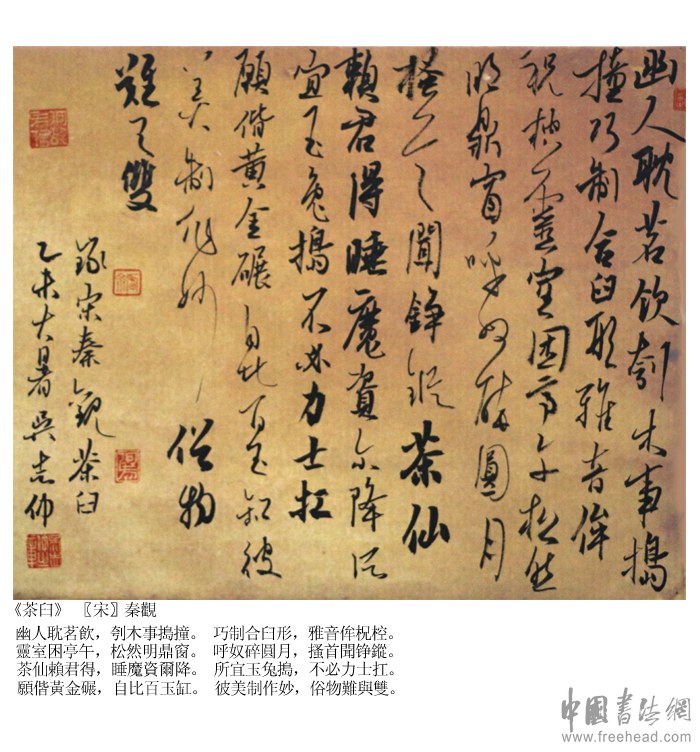 幽人耽茗饮刳木事搗
撞巧制合臼形雅音侔
柷椌靈室困亭午松然
明鼎窗呼奴碎圓月
搔首聞錚鏦茶仙
賴君得睡魔資尔降所
宜玉兔搗不必力士扛
願偕黄金碾自比百玉缸彼
美制作妙俗物
難与雙
録宋秦觀茶臼
乙未大暑吴志仲
《茶臼》 〖宋〗秦觀
幽人耽茗飲，刳木事搗撞。 巧制合臼形，雅音侔柷椌。
靈室困亭午，松然明鼎窗。 呼奴碎圓月，搔首聞铮鏦。
茶仙賴君得，睡魔資爾降。 所宜玉兔搗，不必力士扛。
願偕黃金碾，自比百玉缸。 彼美制作妙，俗物難與雙。
中國書法網
www.freehead.com